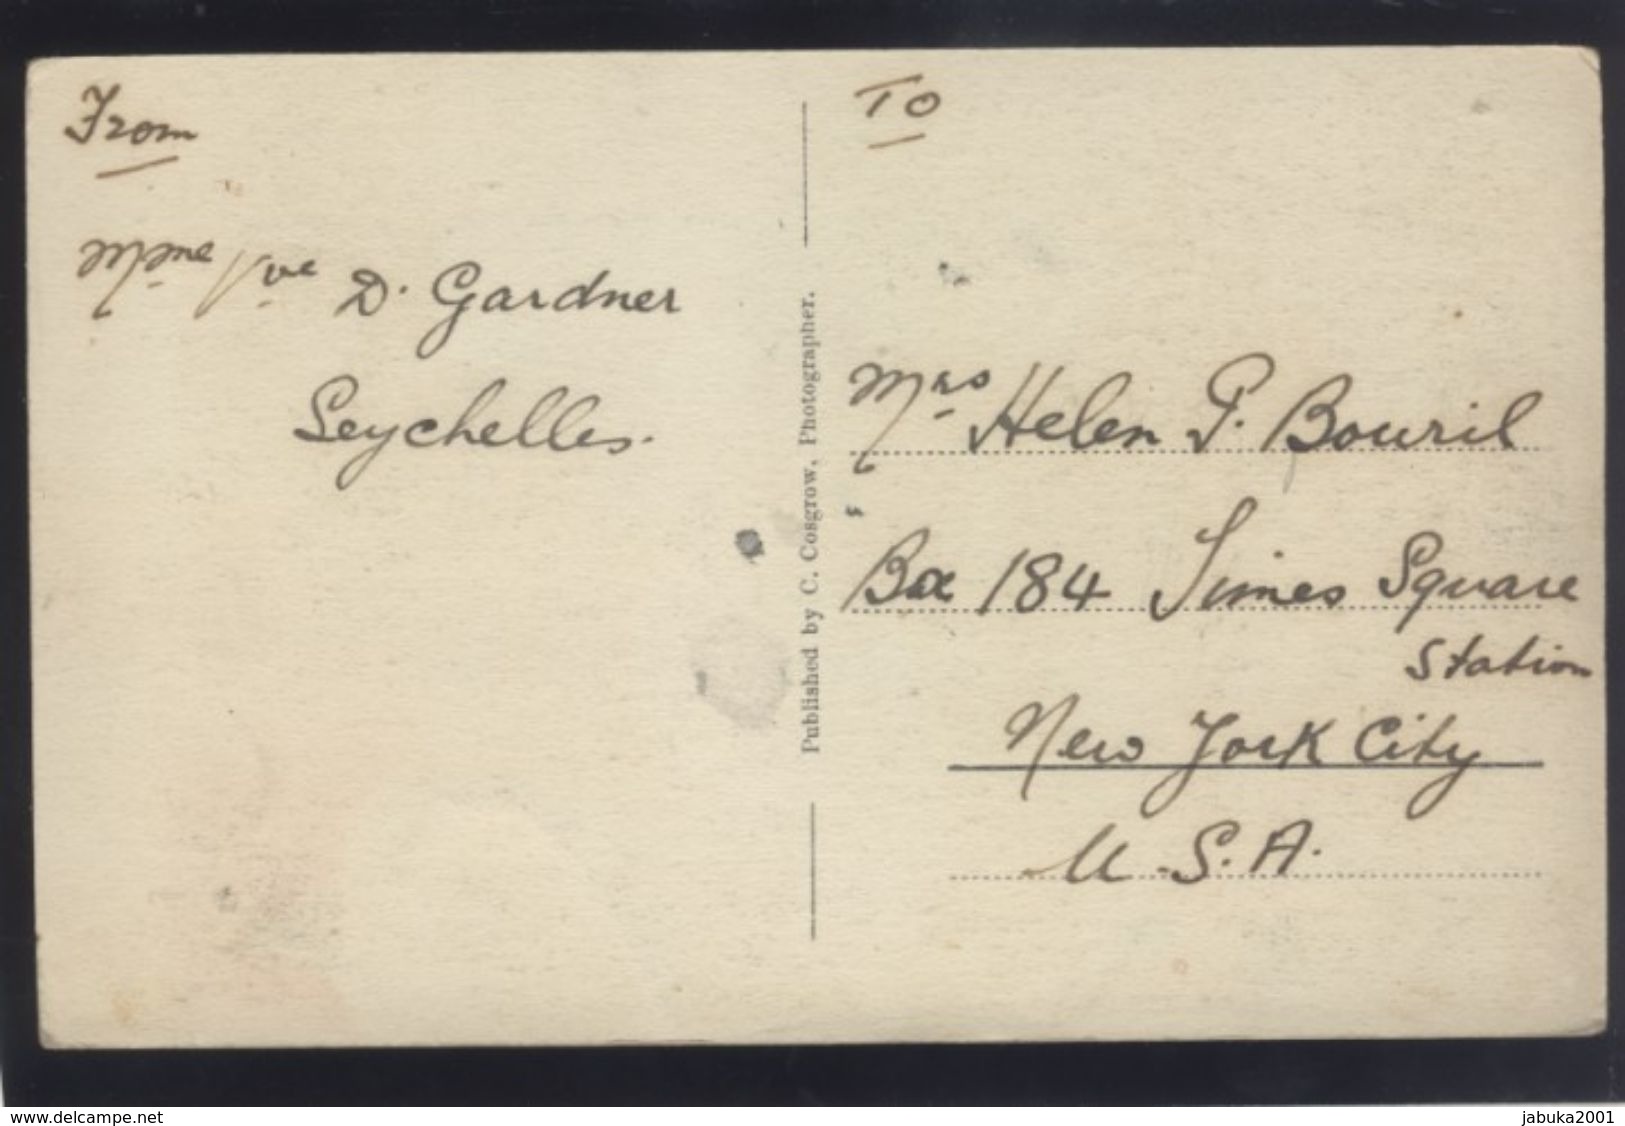 From
Mme Vve D. Gardner
Seychelles.
Published by C. Cosgrow, Photographer.
To
Mrs Helen P. Bouril
Box 184 Times Square
Station
New York City
U.S.A.
www.delcampe.net
jabuka2001